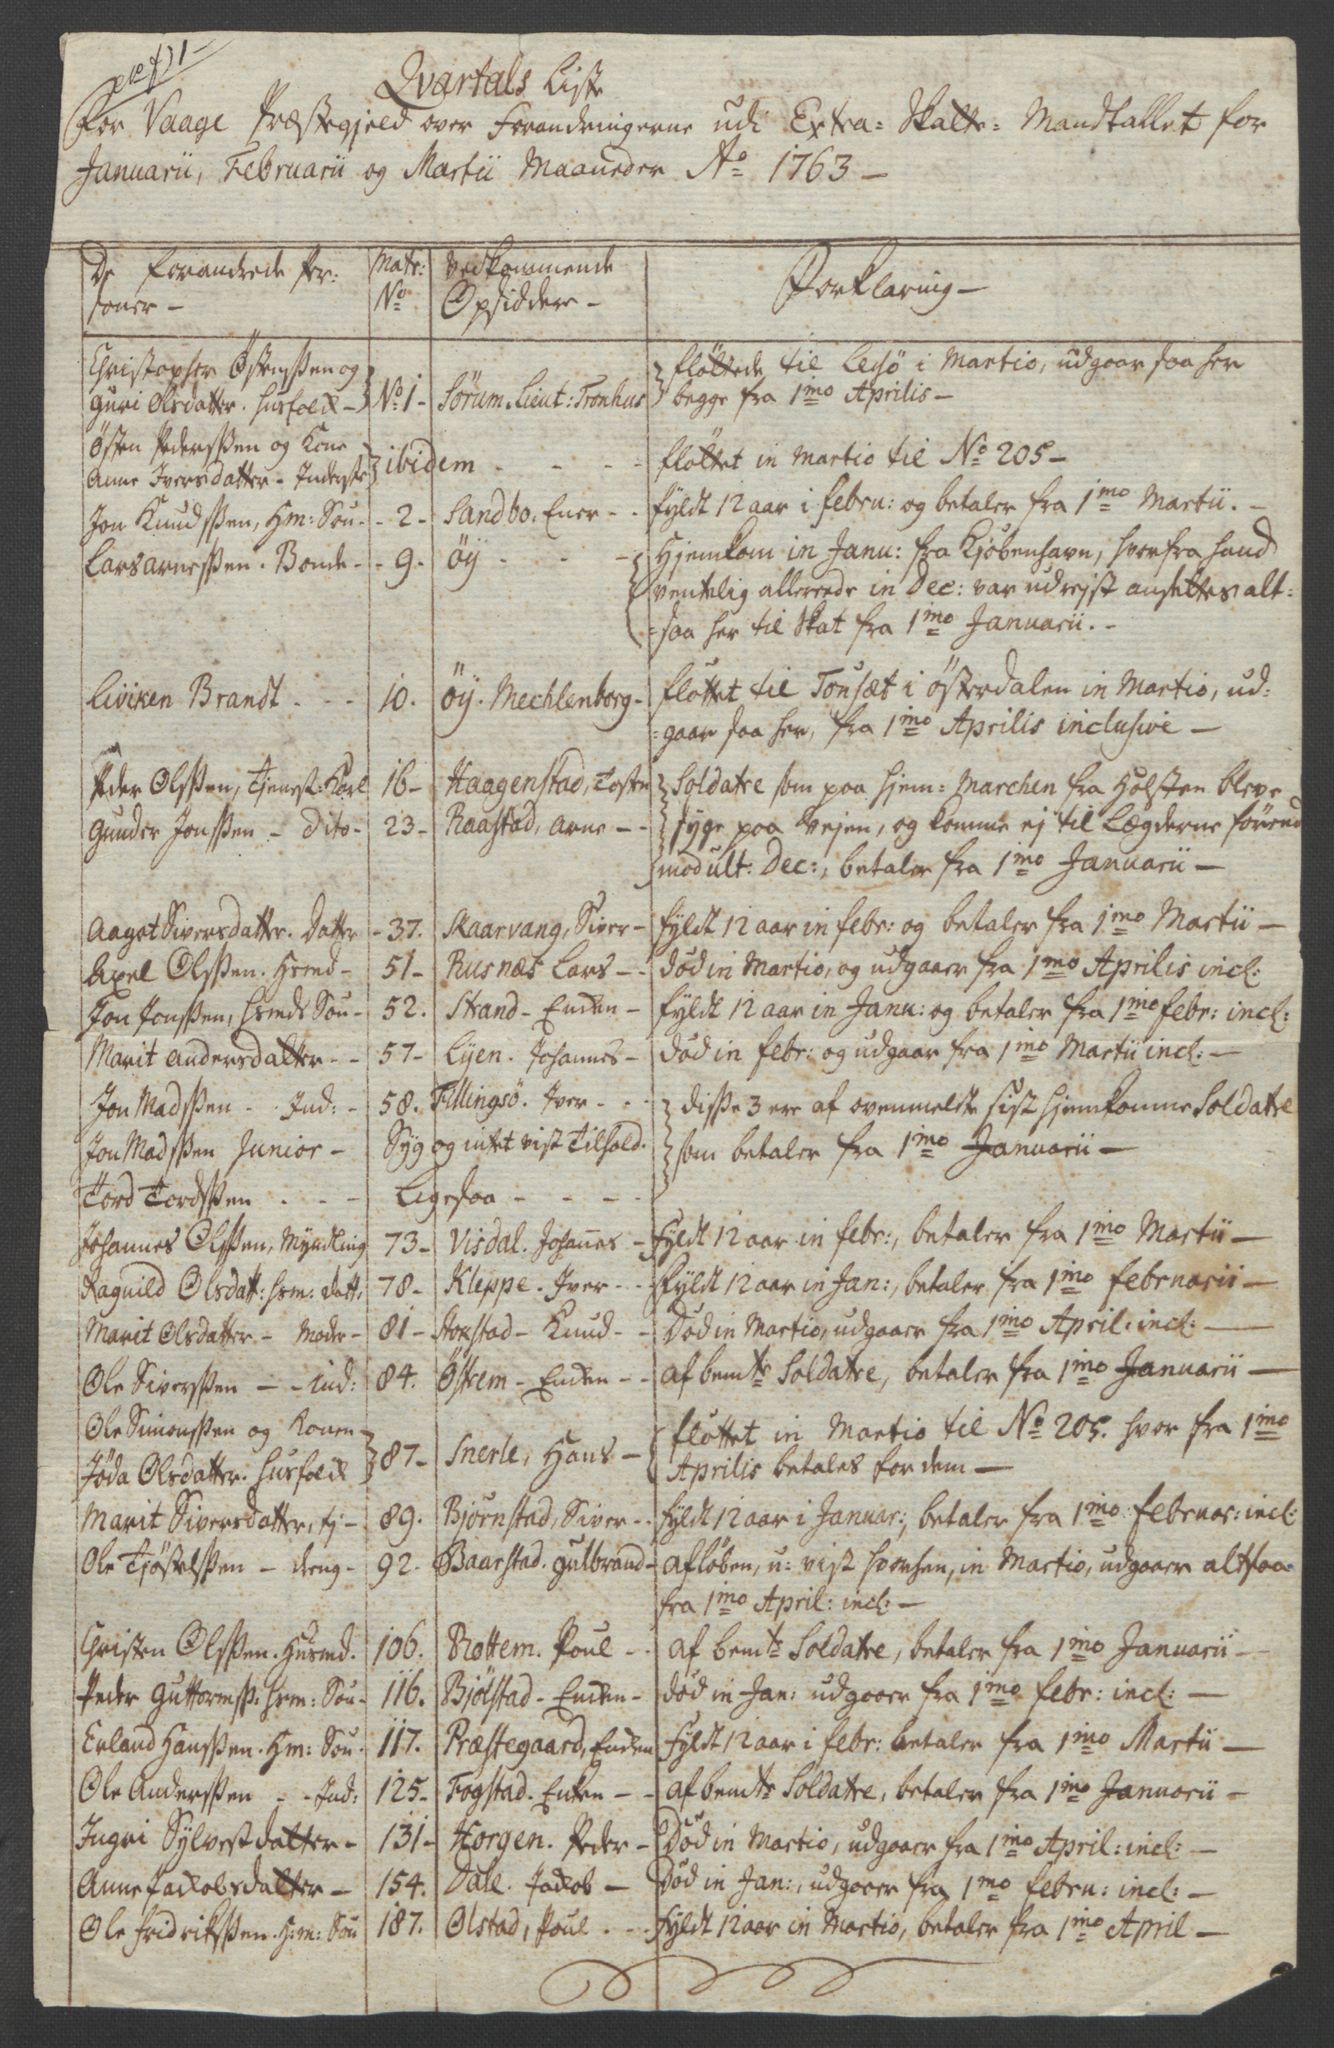 Qvartals Liste
For Vaage Præstegjeld over Forandringerne udi Extra-Skatte-Mandtallet for
Januarii, Februarii og Martii Maaneder Ao 1763 –
De forandrede Per-
soner –
Matr: No
Vedkommende
Opsiddere –
Forklaring –
Christopher Östenssen og
Guri Olsdatter. Husfolk – No 1 – Sørum. Lieut: Tronhus fløttede til Lesö i Martio, udgaar saa her
begge fra 1mo Aprilis –
Östen Pederssen og Kone
Anne Iversdatter – Inderste ibidem - - - fløttet in Martio til No 205 –
Jon Knudssen, Hm: Søn - 2 - Sandbo. Ener - - fyldt 12 aar i febru: og betaler fra 1mo Martii. –
Lars Arnessen. Bonde - - 9. Öy - - - Hjemkom in Janu: fra Kjöbenhavn, hvorfra hand
ventelig allerede in Dec: var udrejst ansettes alt-
-saa her til Skat fra 1mo Januarii. –
Liviken Brandt - - - 10. Öy. Mechlenborg - fløttet til Tonsæt i Österdalen in Martio, ud-
-gaar saa her, fra 1mo Aprilis inclusive –
Peder Olssen, Tjenest: Karl 16 - Haagenstad, Tosten Soldatre som paa Hjem-Marchen fra Holsten bleve
Gunder Jonssen – Dito - 23 - Raastad, Arne - - syge paa Vejen, og komme ej til Lægderne förend
mod ult: Dec:, betaler fra 1mo Januarii –
Aagot Siversdatter. Datter - 37. Skaarvang, Siver - fyldt 12 aar in febr: og betaler fra 1mo Martii –
Axel Olssen. Hsmd - 51 - Rusnæs Lars - - död in Martio, og udgaaer fra 1mo Aprilis incl:
Jon Jonssen, Hsmds Søn - 52. Strand – Enken – fyldt 12 aar in Janu: og betaler fra 1mo febr: incl:
Marit Andersdatter - - 57 - Lyen. Johannes - död in febr: og udgaar fra 1mo Martii incl: –
Jon Madssen - - Ind: - 58. Tillingsö. Iver - - - disse 3 ere af ovenmelte sist hjemkomne Soldatre
Jon Madssen Junior – Syg og intet vist Tilhold. som betaler fra 1mo Januarii –
Tord Tordssen - - - Ligesaa - - - -
Johannes Olssen, Myndling 73 - Visdal. Johannes - fyldt 12 aar in febr:, betaler fra 1mo Martii –
Ragnild Olsdatt: Hsm: datt. 78 - Kleppe. Iver - - fyldt 12 aar in Jan:, betaler fra 1mo februarii –
Marit Olsdatter – Moder - 81 - Stoxstad – Knud - - Död in Martio, udgaaer fra 1mo April: incl: –
Ole Siverssen – - Ind: 84. Östem – Enken - - af bemte Soldatre, betaler fra 1mo Januarii –
Ole Simonssen og Konen
Jöda Olsdatter. Husfolk 87 - Snerle, Hans - fløttet in Martio til No 205. hvor fra 1mo
Aprilis betales for dem –
Marit Siversdatter, tj - 89. Bjørnstad, Siver - - fyldt 12 aar i Januar:, betaler fra 1mo februar: incl:
Ole Tjöstelssen – dreng - 92 - Baarstad. Gulbrand - afløben, u-vist hvorhen, in Martio, udgaaer altsaa
fra 1mo April: incl: –
Christen Olssen. Husmd. 106. Bottem. Poul - - af bemte Soldatre, betaler fra 1mo Januarii –
Peder Guttormss: Hsm: Søn - 116. Bjölstad – Enken - död in Jan: udgaaer fra 1mo febr: incl: –
Erland Hanssen. Hm: Søn - 117. Præstegaard, Enken fyldt 12 aar i febr: betaler fra 1mo Martii –
Ole Anderssen - - Ind: 125 - Fogstad. Enken - - af bemte Soldatre, betaler fra 1mo Januarii –
Ingri Sylvestdatter – 131 - Horgen. Peder - Död in Martio, udgaaer fra 1mo April: incl: –
Anne Jacobsdatter – 154. Dale. Jacob – Död in Jan:, udgaaer fra 1mo febru: incl: –
Ole Fridrikssen. H:m: Søn 187. Olstad, Poul - - fyldt 12 aar in Martio, betaler fra 1mo April –